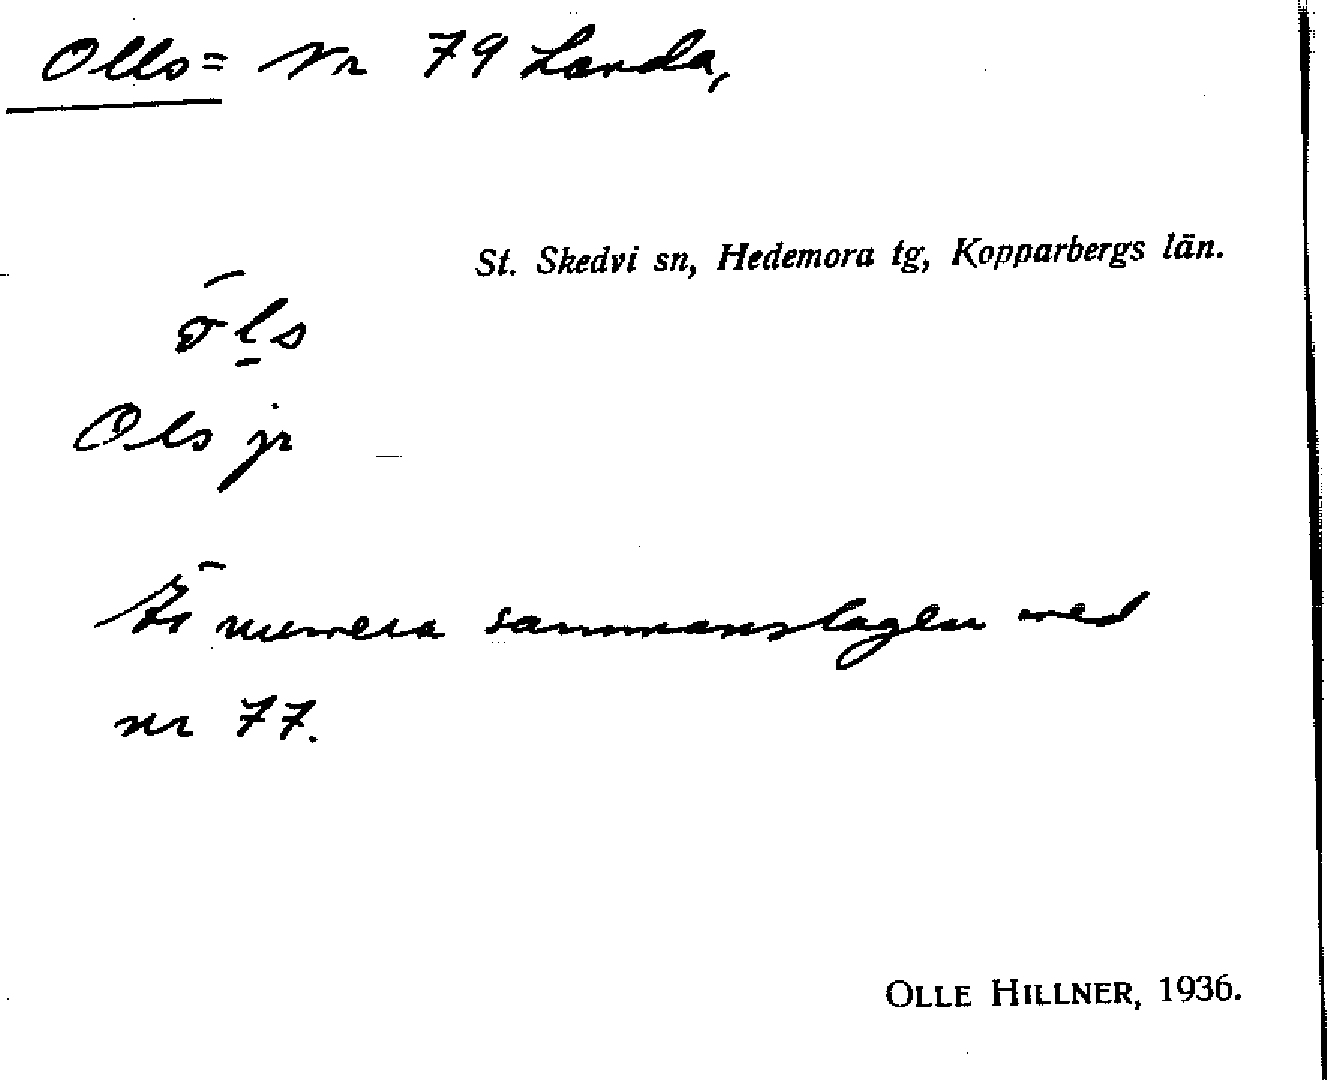 Olls= Nr 79 Landa,
St. Skedvi sn, Hedemora tg, Kopparbergs län.
ōl̠s
Ols jr
Är numera sammanslagen med
nr 77.
OLLE HILLNER, 1936.